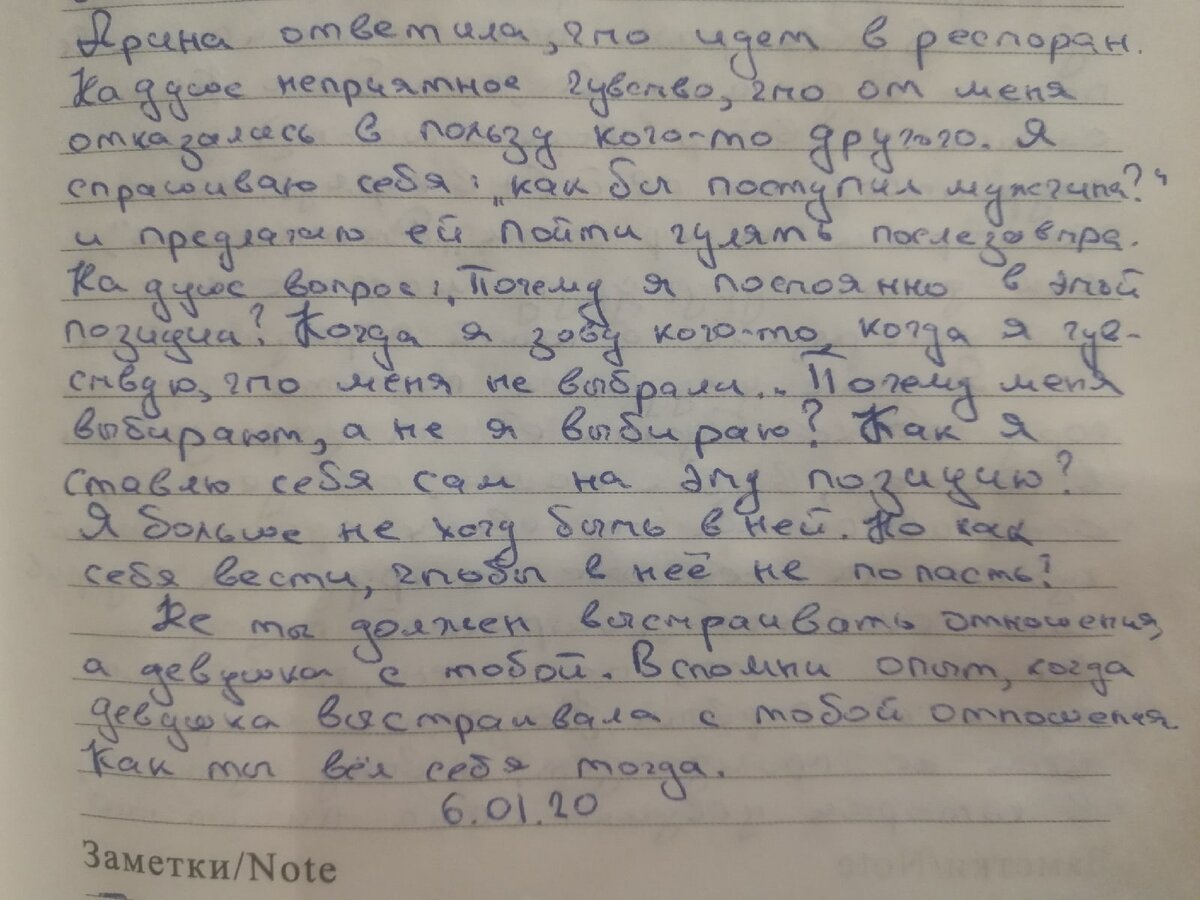 Арина ответила, что идет в ресторан.
На душе неприятное чувство, что от меня
отказалась в пользу кого-то другого. Я
спрашиваю себя: „как бы поступил мужчина?“
и предлагаю ей пойти гулять послезавтра.
На душе вопрос: „Почему я постоянно в этой
позиции? Когда я зову кого-то, когда я чув-
ствую, что меня не выбрали.. Почему меня
выбирают, а не я выбираю? Как я
ставлю себя сам на эту позицию?
Я больше не хочу быть в ней. Но как
себя вести, чтобы в неё не попасть?
Не ты должен выстраивать отношения,
а девушка с тобой. Вспомни опыт, когда
девушка выстраивала с тобой отношения.
Как ты вёл себя тогда.
6.01.20
Заметки/Note